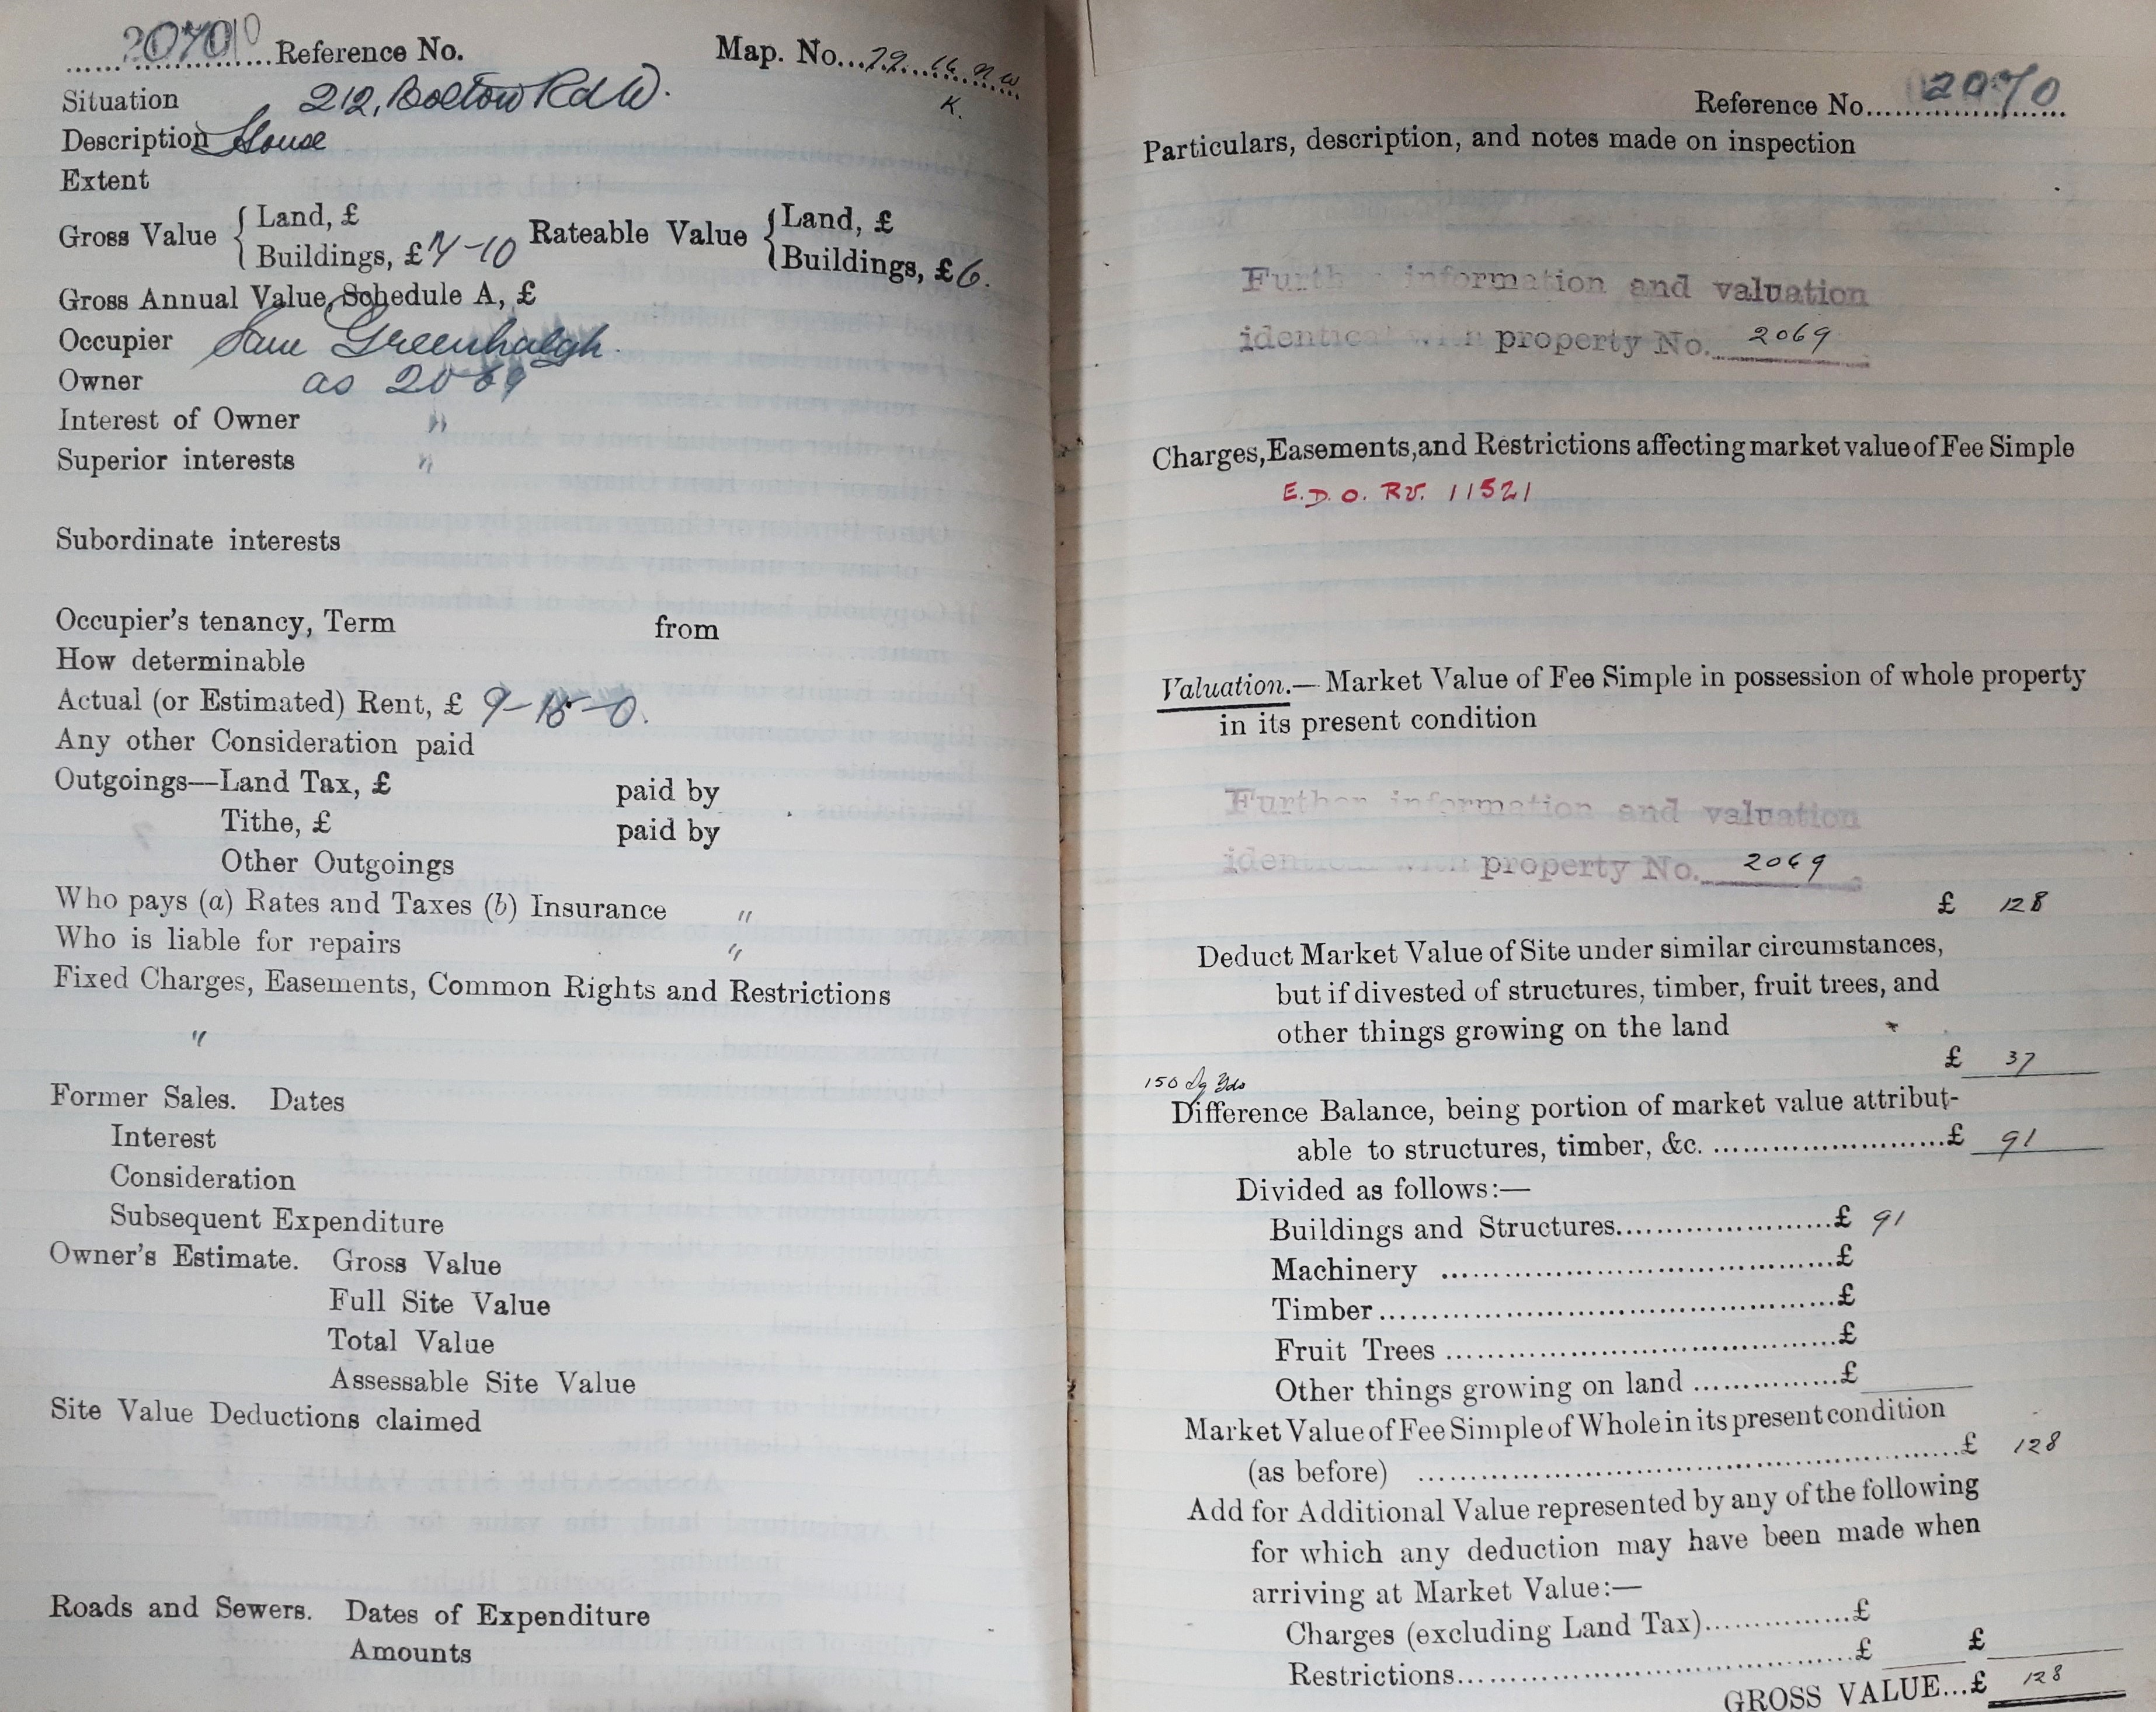 2070 Reference No. Map. No... 79. 14. N W
K.
Situation 212, Bolton Rd W.
Description House
Extent
Gross Value { Land, £ Rateable Value { Land, £
Buildings, £7-10 Buildings, £6.
Gross Annual Value, Schedule A, £
Occupier Greenhalgh
Owner as 2069
Interest of Owner "
Superior interests "
Subordinate interests
Occupier's tenancy, Term from
How determinable
Actual (or Estimated) Rent, £ 9- -0.
Any other Consideration paid
Outgoings—Land Tax, £ paid by
Tithe, £ paid by
Other Outgoings
Who pays (a) Rates and Taxes (b) Insurance "
Who is liable for repairs "
Fixed Charges, Easements, Common Rights and Restrictions
"
Former Sales. Dates
Interest
Consideration
Subsequent Expenditure
Owner's Estimate. Gross Value
Full Site Value
Total Value
Assessable Site Value
Site Value Deductions claimed
Roads and Sewers. Dates of Expenditure
Amounts
Reference No. 2070
Particulars, description, and notes made on inspection
Further information and valuation
identical with property No. 2069
Charges, Easements, and Restrictions affecting market value of Fee Simple
E.D.O. Rv. 11521
Valuation.— Market Value of Fee Simple in possession of whole property
in its present condition
Further information and valuation
identical with property No. 2069
£ 128
Deduct Market Value of Site under similar circumstances,
but if divested of structures, timber, fruit trees, and
other things growing on the land
£ 37
150 Sq Yds
Difference Balance, being portion of market value attribut-
able to structures, timber, &c. £ 91
Divided as follows:—
Buildings and Structures £ 91
Machinery £
Timber £
Fruit Trees £
Other things growing on land £
Market Value of Fee Simple of Whole in its present condition
(as before) £ 128
Add for Additional Value represented by any of the following
for which any deduction may have been made when
arriving at Market Value:—
Charges (excluding Land Tax) £
Restrictions £ £
GROSS VALUE...£ 128